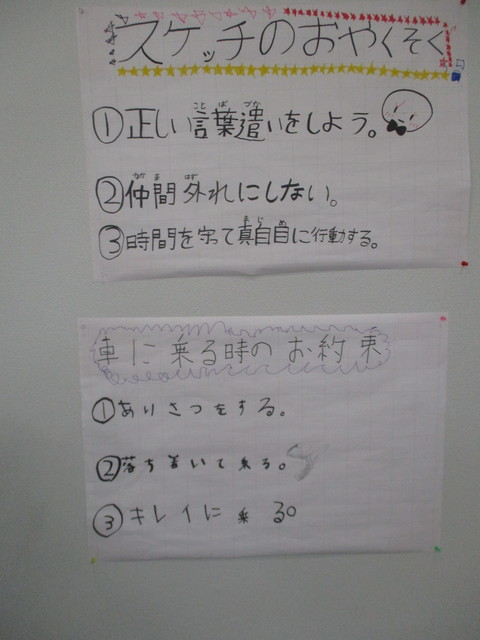 スケッチのおやくそく
①正しい言葉遣いをしよう。
②仲間外れにしない。
③時間を守って真面目に行動する。
車に乗る時のお約束
①あいさつをする。
②落ち着いて乗る。
③キレイに乗る。